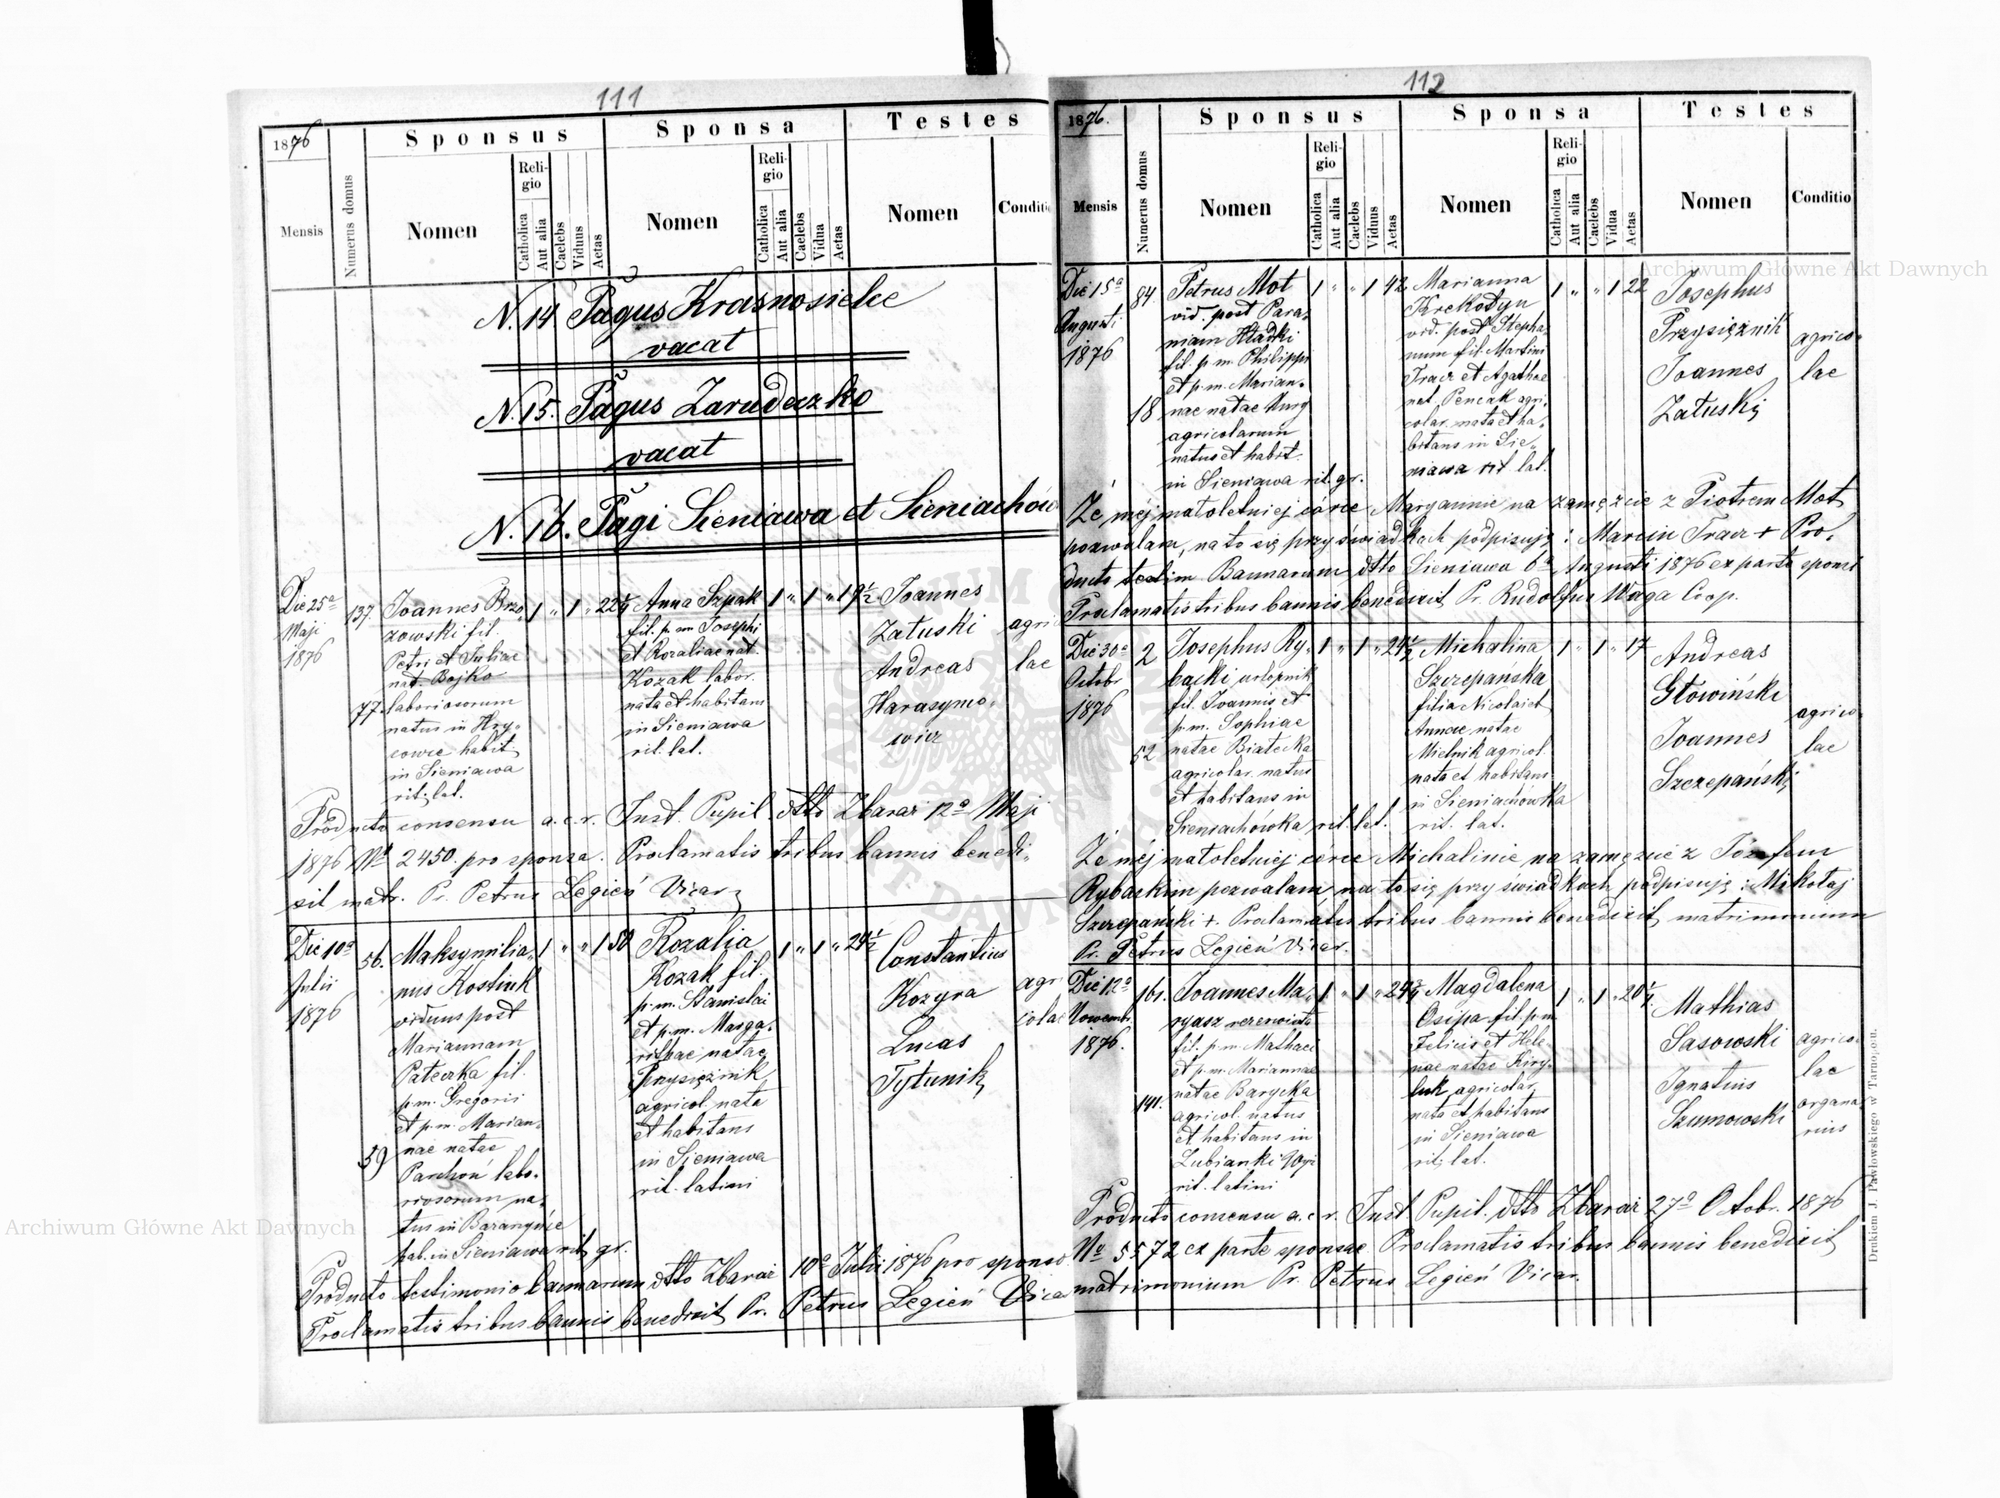 111
1876
Sponsus
Sponsa
Testes
Mensis
Numerus domus
Nomen
Religio
Catholica
Aut alia
Caelebs
Viduus
Aetas
Nomen
Religio
Catholica
Aut alia
Caelebs
Vidua
Aetas
Nomen
Conditio
N. 14 Pagus Krasnosielce
vacat
N. 15. Pagus Zarudeczko
vacat
N. 16. Pagi Sieniawa et Sieniachów
Die 25a
Maji
1876
137.
77.
Joannes Brzo-
zowski fil.
Petri et Juliae
nat. Bojko
laboriosorum
natus in Hry-
cowce habit.
in Sieniawa
rit. lat.
1 " 1 " 22 1/4
Anna Szpak
fil. p. m. Josephi
et Rozaliae nat.
Kozak labor.
nata et habitans
in Sieniawa
rit. lat.
1 " 1 " 19 1/2
Joannes
Załuski
Andreas
Harasymo-
wicz
agri
lae
Producto consensu a. c. r. Inst. Pupil. dtto Zbaraż 12a Maji
1876 No 2450. pro sponsa. Proclamatis tribus bannis benedi-
xit matr. Pr. Petrus Legień Vicar
Die 10a
Julii
1876
56.
59
Maksymilia-
nus Kostiuk
viduus post
Mariannam
Pateczka fil.
p. m. Gregorii
et p. m. Marian-
nae natae
Parchoń labo-
riosorum na-
tus in
hab. in Sieniawa rit. gr.
1 " " 1 50
Rozalia
Kozak fil.
p. m. Stanislai
et p. m. Marga-
rithae natae
Przysiężnik
agricol. nata
et habitans
in Sieniawa
rit. latini
1 " 1 " 24 1/2
Constantius
Kozyra
Lucas
Tytunik
agri
colae
Producto testimonio bannorum dtto Zbaraż 10a Julii 1876 pro sponso
Proclamatis tribus bannis benedixit Pr. Petrus Legień Vica
112
1876.
Sponsus
Sponsa
Testes
Mensis
Numerus domus
Nomen
Religio
Catholica
Aut alia
Caelebs
Viduus
Aetas
Nomen
Religio
Catholica
Aut alia
Caelebs
Vidua
Aetas
Nomen
Conditio
Die 15a
Augusti
1876
84.
18
Petrus Mot
vid. post Para-
niam Hładki
fil. p. m. Philippi
et p. m. Marian-
nae natae
agricolarum
natus et habit.
in Sieniawa rit. gr.
1 " " 1 42
Marianna
vid. post Stepha-
num fil. Martini
Tracz et Agathae
nat. Pencak agri-
colar. nata et ha-
bitans in Sie-
niawa rit lat.
1 " " 1 22
Josephus
Przysiężnik
Joannes
Załuski
agrico-
lae
Że mej małoletniej córce Maryannie na zamęzcie z Piotrem Mot
pozwalam, na to się przy świadkach podpisuję: Marcin Tracz + Pro-
ducto testim. Bannorum dtto Sieniawa 6a Augusti 1876 ex parte sponsi
Proclamatis tribus bannis benedixit Pr. Rudolfus Warga Coop.
Die 30a
Octobr
1876
2
52
Josephus Ry-
backi urlopnik
fil. Joannis et
p. m. Sophiae
natae Białecka
agricolar. natus
et habitans in
Sieniachówka rit. lat.
1 " 1 " 24 1/2
Michalina
Szczepańska
filia Nicolai et
Annae natae
Mielnik agricol.
nata et habitans
in Sieniachówka
rit. lat.
1 " 1 " 17
Andreas
Głowiński
Joannes
Szczepański
agrico-
lae
Że mej małoletniej córce Michalinie na zamęzcie z Józefem
Rybackim pozwalam na to się przy świadkach podpisuję: Mikołaj
Szczepanski + Proclamatis tribus bannis benedixit matrimonium
Pr. Petrus Legień Vicar.
Die 12a
Novembr.
1876.
161.
141.
Joannes Ma-
ryasz rezerwista
fil. p. m. Mathaei
et p. m. Mariannae
natae Barycka
agricol. natus
et habitans in
Łubianki
rit. latini
1 " 1 " 24 3/4
Magdalena
Osipa fil. p. m.
Felicis et Hele-
nae natae Kiry-
luk agricolar.
nata et habitans
in Sieniawa
rit. lat.
1 " 1 " 20 1/4
Mathias
Sasowski
Ignatius
Szumowski
agrico-
lae
organa-
rius
Producto consensu a. c. r. Inst. Pupil. dtto Zbaraż 27a Octobr. 1876
No 5572 ex parte sponsae. Proclamatis tribus bannis benedixit
matrimonium Pr. Petrus Legień Vicar.
Drukiem J. Pawłowskiego w Tarnopolu.
Archiwum Główne Akt Dawnych
Archiwum Główne Akt Dawnych